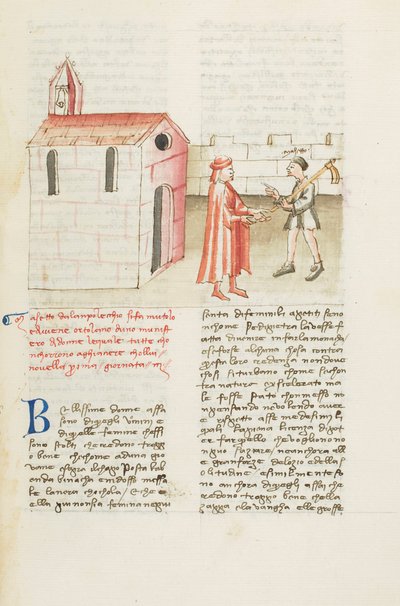 masetto
Masetto da lanpolechio si fa mutolo
e diviene ortolano duno munist
ero di donne lequale tutte cho
nchorrono aghiacere chollui
novella prima giornata iij
Bellissime donne assa
sono di quegli uomini e
di quelle femine che ssi
sono stolti che credono tropp
o bene che chome aduna gio
vane e sopra il chapo posta la b
enda biancha e indosso messa
le la nera chochola che e
ella piu non sia femina ne piu
senta di feminili apetiti se no
n chome se di pietra lavesse fa
tta divenire in farla monacha
e se forse alchuna chosa contra
questa loro credenza nodono
chosi si turbano chome se chon
tra natura
le fosse stato chomesso no
n pensando ne volendo avere
e rispetto a sse medesimi i
quali la piena licenza di pot
er far quello che vogliono no
n puo saziare ne anchora all
e gran forze delozio e della s
olitudine e similmente so
no anchora di quegli assai che
credono troppo bene che lla
zappa e la vangha e lle grosse